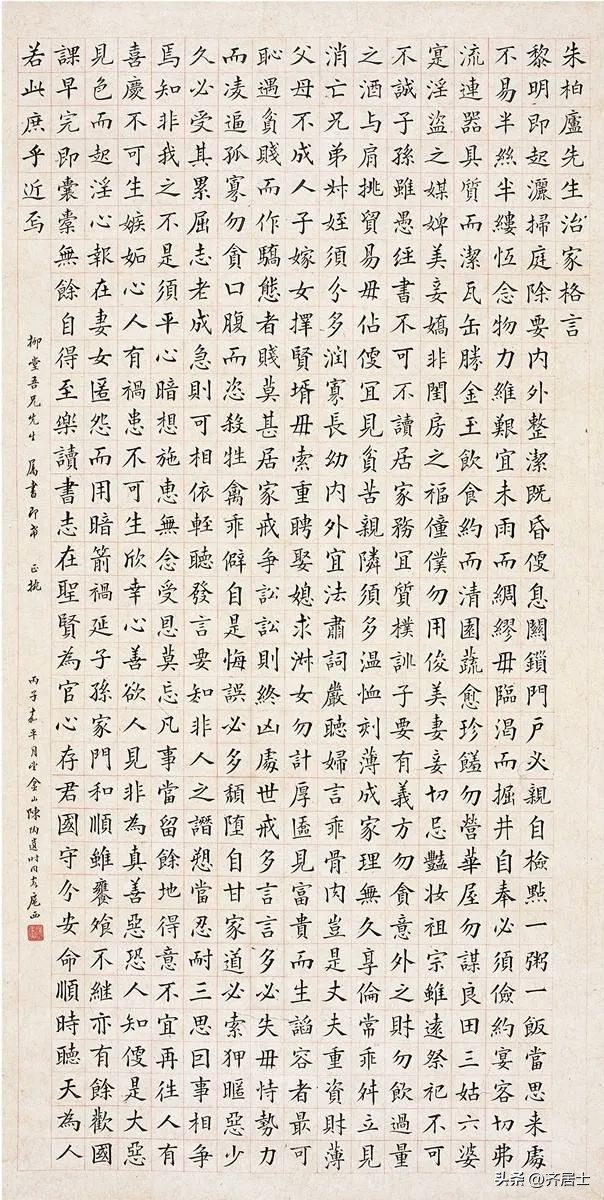 朱柏廬先生治家格言
黎明即起灑掃庭除要內外整潔既昏便息關鎖門戶必親自檢點一粥一飯當思來處
不易半絲半縷恆念物力維艱宜未雨而綢繆毋臨渴而掘井自奉必須儉約宴客切弗
流連器具質而潔瓦缶勝金玉飲食約而清園蔬愈珍饈勿營華屋勿謀良田三姑六婆
寔淫盜之媒婢美妾嬌非閨房之福僮僕勿用俊美妻妾切忌豔妝祖宗雖遠祭祀不可
不誠子孫雖愚經書不可不讀居家務宜質樸訓子要有義方勿貪意外之財勿飲過量
之酒与肩挑貿易毋佔便宜見貧苦親隣須多温恤刻薄成家理無久享倫常乖舛立見
消亡兄弟叔姪須分多润寡長幼內外宜法肅詞嚴聽婦言乖骨肉豈是丈夫重資財薄
父母不成人子嫁女擇賢壻毋索重聘娶媳求淑女勿計厚匳見富貴而生諂容者最可
恥遇貧賤而作驕態者賤莫甚居家戒爭訟訟則終凶處世戒多言言多必失毋恃勢力
而凌逼孤寡勿貪口腹而恣殺牲禽乖僻自是悔誤必多頹墮自甘家道必索狎暱惡少
久必受其累屈志老成急則可相依輕聽發言要知非人之譖愬當忍耐三思曰事相爭
焉知非我之不是須平心暗想施惠無念受恩莫忘凡事當留餘地得意不宜再往人有
喜慶不可生嫉妬心人有禍患不可生欣幸心善欲人見非為真善惡恐人知便是大惡
見色而起淫心報在妻女匿怨而用暗箭禍延子孫家門和順雖饔飧不継亦有餘歡國
課早完即囊橐無餘自得至樂讀書志在聖賢為官心存君國守分安命順時聽天為人
若此庶乎近焉
柳堂吾兄先生 屬書即希 正
丙子嘉平月 金山陳陶遺時同客扈西
头条 @齐居士